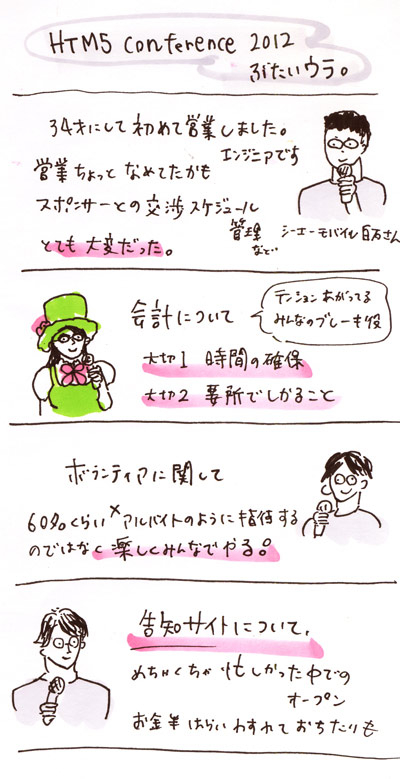 HTML5 Conference 2012
ぶたいウラ。
34才にして初めて営業しました。
エンジニアです
営業ちょっと なめてたかも
スポンサーとの交渉スケジュール
管理
など…
とても 大変だった。
シーエーモバイル 白石さん
会計について
テンションあがってる
みんなのブレーキ役
大切1 時間の確保
大切2 要所でしかること
ボランティアに関して
60名くらい × アルバイトのように指待する
のではなく 楽しくみんなでやる。
告知サイトについて。
めちゃくちゃ 忙しかった中での
オープン
お金半はらいわすれて おちたりも